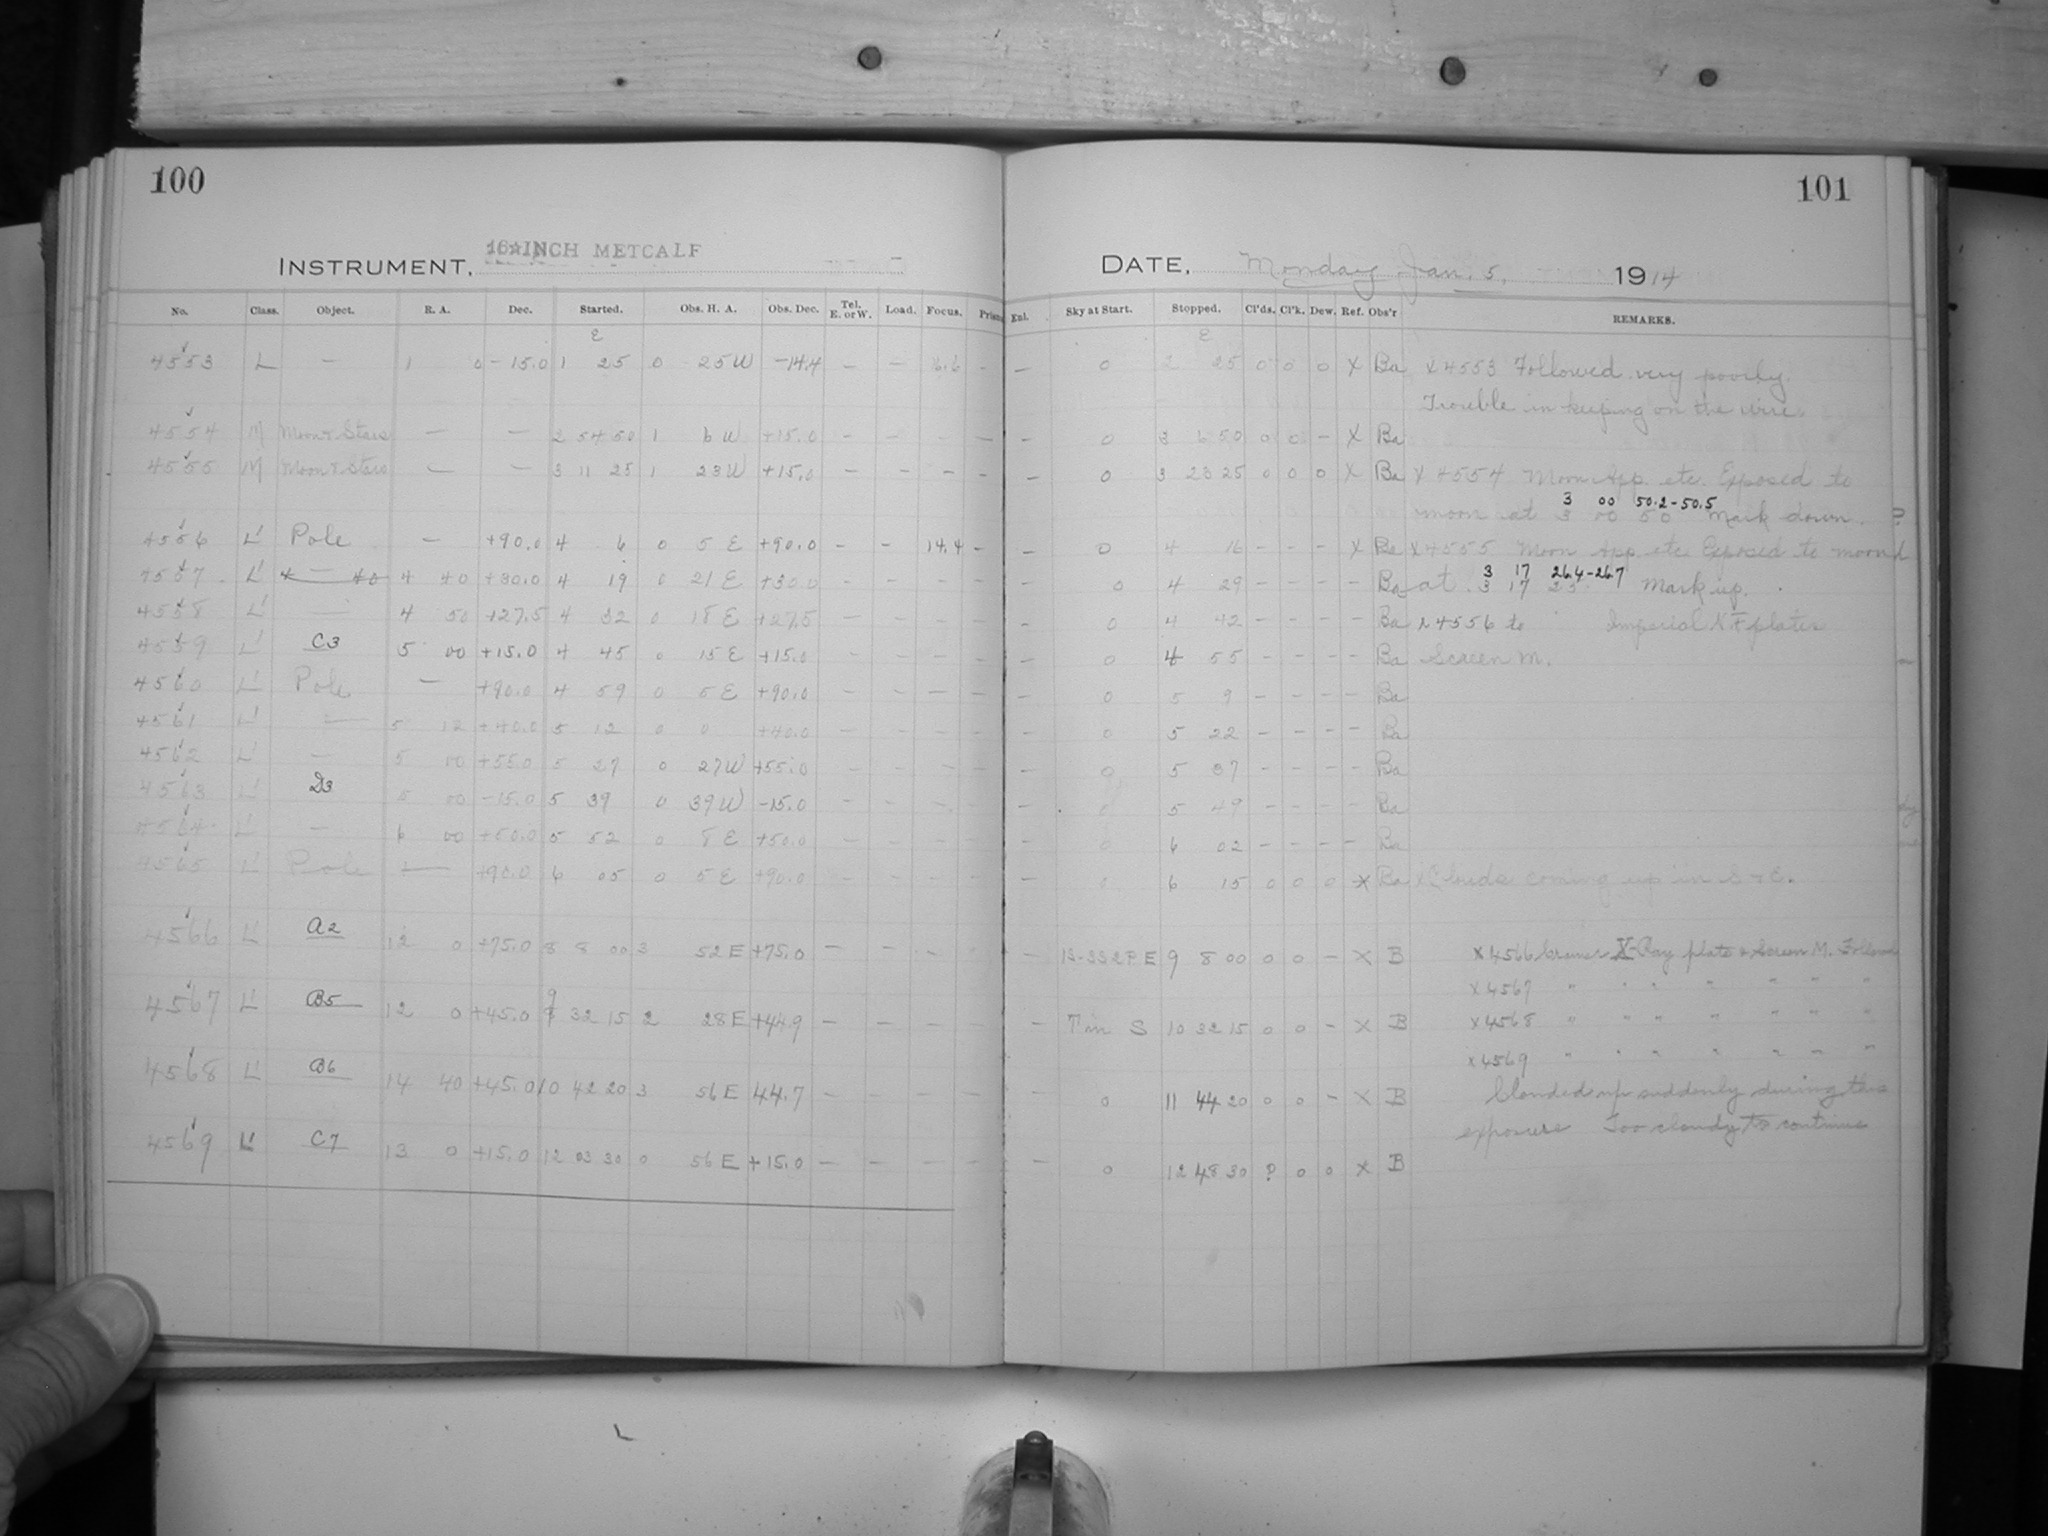 100
101
INSTRUMENT, 16 INCH METCALF
DATE, Monday Jan. 5, 1914
No. Class. Object. R. A. Dec. Started. Obs. H. A. Obs. Dec. Tel. E. or W. Load. Focus. Prism Enl. Sky at Start. Stopped. Cl'ds. Cl'k. Dew. Ref. Obs'r REMARKS.
E E
4553 L — 1 0 -15.0 1 25 0 25 W -14.4 — — — — 0 2 25 0 0 0 X Ba X 4553 Followed very poorly.
Trouble in keeping on the wire.
4554 M Moon & Stars — — 2 54 50 1 6 W +15.0 - - - - 0 3 6 50 0 0 - X Ba
4555 M Moon & Stars — — 3 11 25 1 23 W +15.0 - - - - - 0 3 23 25 0 0 0 X Ba X 4554 Moon App. etc. Exposed to
3 00 50.2-50.5
moon at 3 00 50 Mark down. ?
4556 L' Pole — +90.0 4 6 0 5 E +90.0 - - 14.4 - - 0 4 16 - - - X Ba X 4555 Moon App. etc. Exposed to moon
3 17 26.4-26.7
4557 L' — 4 40 +30.0 4 19 0 21 E +30.0 - - - - 0 4 29 - - - - Ba at 3 17 Mark up.
4558 L' — 4 50 +27.5 4 32 0 18 E +27.5 - - - - - 0 4 42 - - - - Ba 4556 to Imperial N F plates
4559 L' C3 5 00 +15.0 4 45 0 15 E +15.0 - - - - - 0 4 55 - - - - Ba Screen M.
4560 L' Pole — +90.0 4 59 0 5 E +90.0 - - - - - 0 5 9 - - - - Ba
4561 L' — 5 12 +40.0 5 12 0 0 +40.0 - - - - - 0 5 22 - - - - Ba
4562 L' — 5 00 +55.0 5 27 0 27 W +55.0 - - - - - 0 5 37 - - - - Ba
4563 L' D3 5 00 -15.0 5 39 0 39 W -15.0 - - - - - 0 5 49 - - - - Ba
4564 L' — 6 00 +50.0 5 52 0 8 E +50.0 - - - - - 0 6 02 - - - - Ba
4565 L' Pole — +90.0 6 05 0 5 E +90.0 - - - - - 0 6 15 0 0 0 X Ba X Clouds coming up in S & E.
4566 L' A2 12 0 +75.0 8 8 00 3 52 E +75.0 - - - - - E 9 8 00 0 0 - X B X 4566 Cramer X-Ray plate & Screen M.
X 4567 " " " " " " "
4567 L' B5 12 0 +45.0 9 32 15 2 28 E +44.9 - - - - - S 10 32 15 0 0 - X B X 4568 " " " " " " "
X 4569 " " " " " " "
4568 L' B6 14 40 +45.0 10 42 20 3 56 E 44.7 - - - - - 0 11 44 20 0 0 - X B Clouded up suddenly during this
exposure Too cloudy to continue
4569 L' C7 13 0 +15.0 12 03 30 0 56 E +15.0 - - - - - 0 12 48 30 ? 0 0 X B